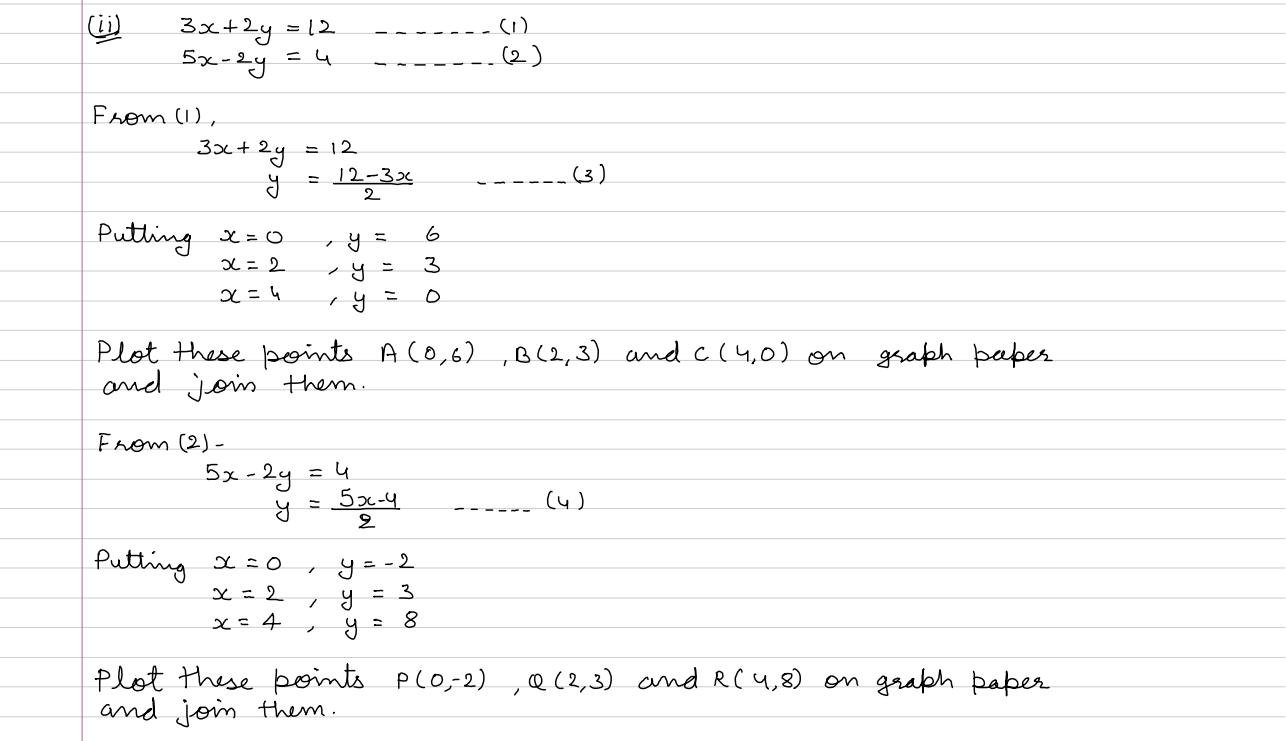 (ii) 3x+2y = 12 ------- (1)
5x-2y = 4 ------- (2)
From (1),
3x+2y = 12
y = (12-3x)/2 ------ (3)
Putting x=0 , y = 6
x=2 , y = 3
x=4 , y = 0
Plot these points A(0,6) , B(2,3) and C(4,0) on graph paper
and join them.
From (2)-
5x-2y = 4
y = (5x-4)/2 ------ (4)
Putting x=0 , y=-2
x=2 , y = 3
x=4 , y = 8
Plot these points P(0,-2) , Q(2,3) and R(4,8) on graph paper
and join them.